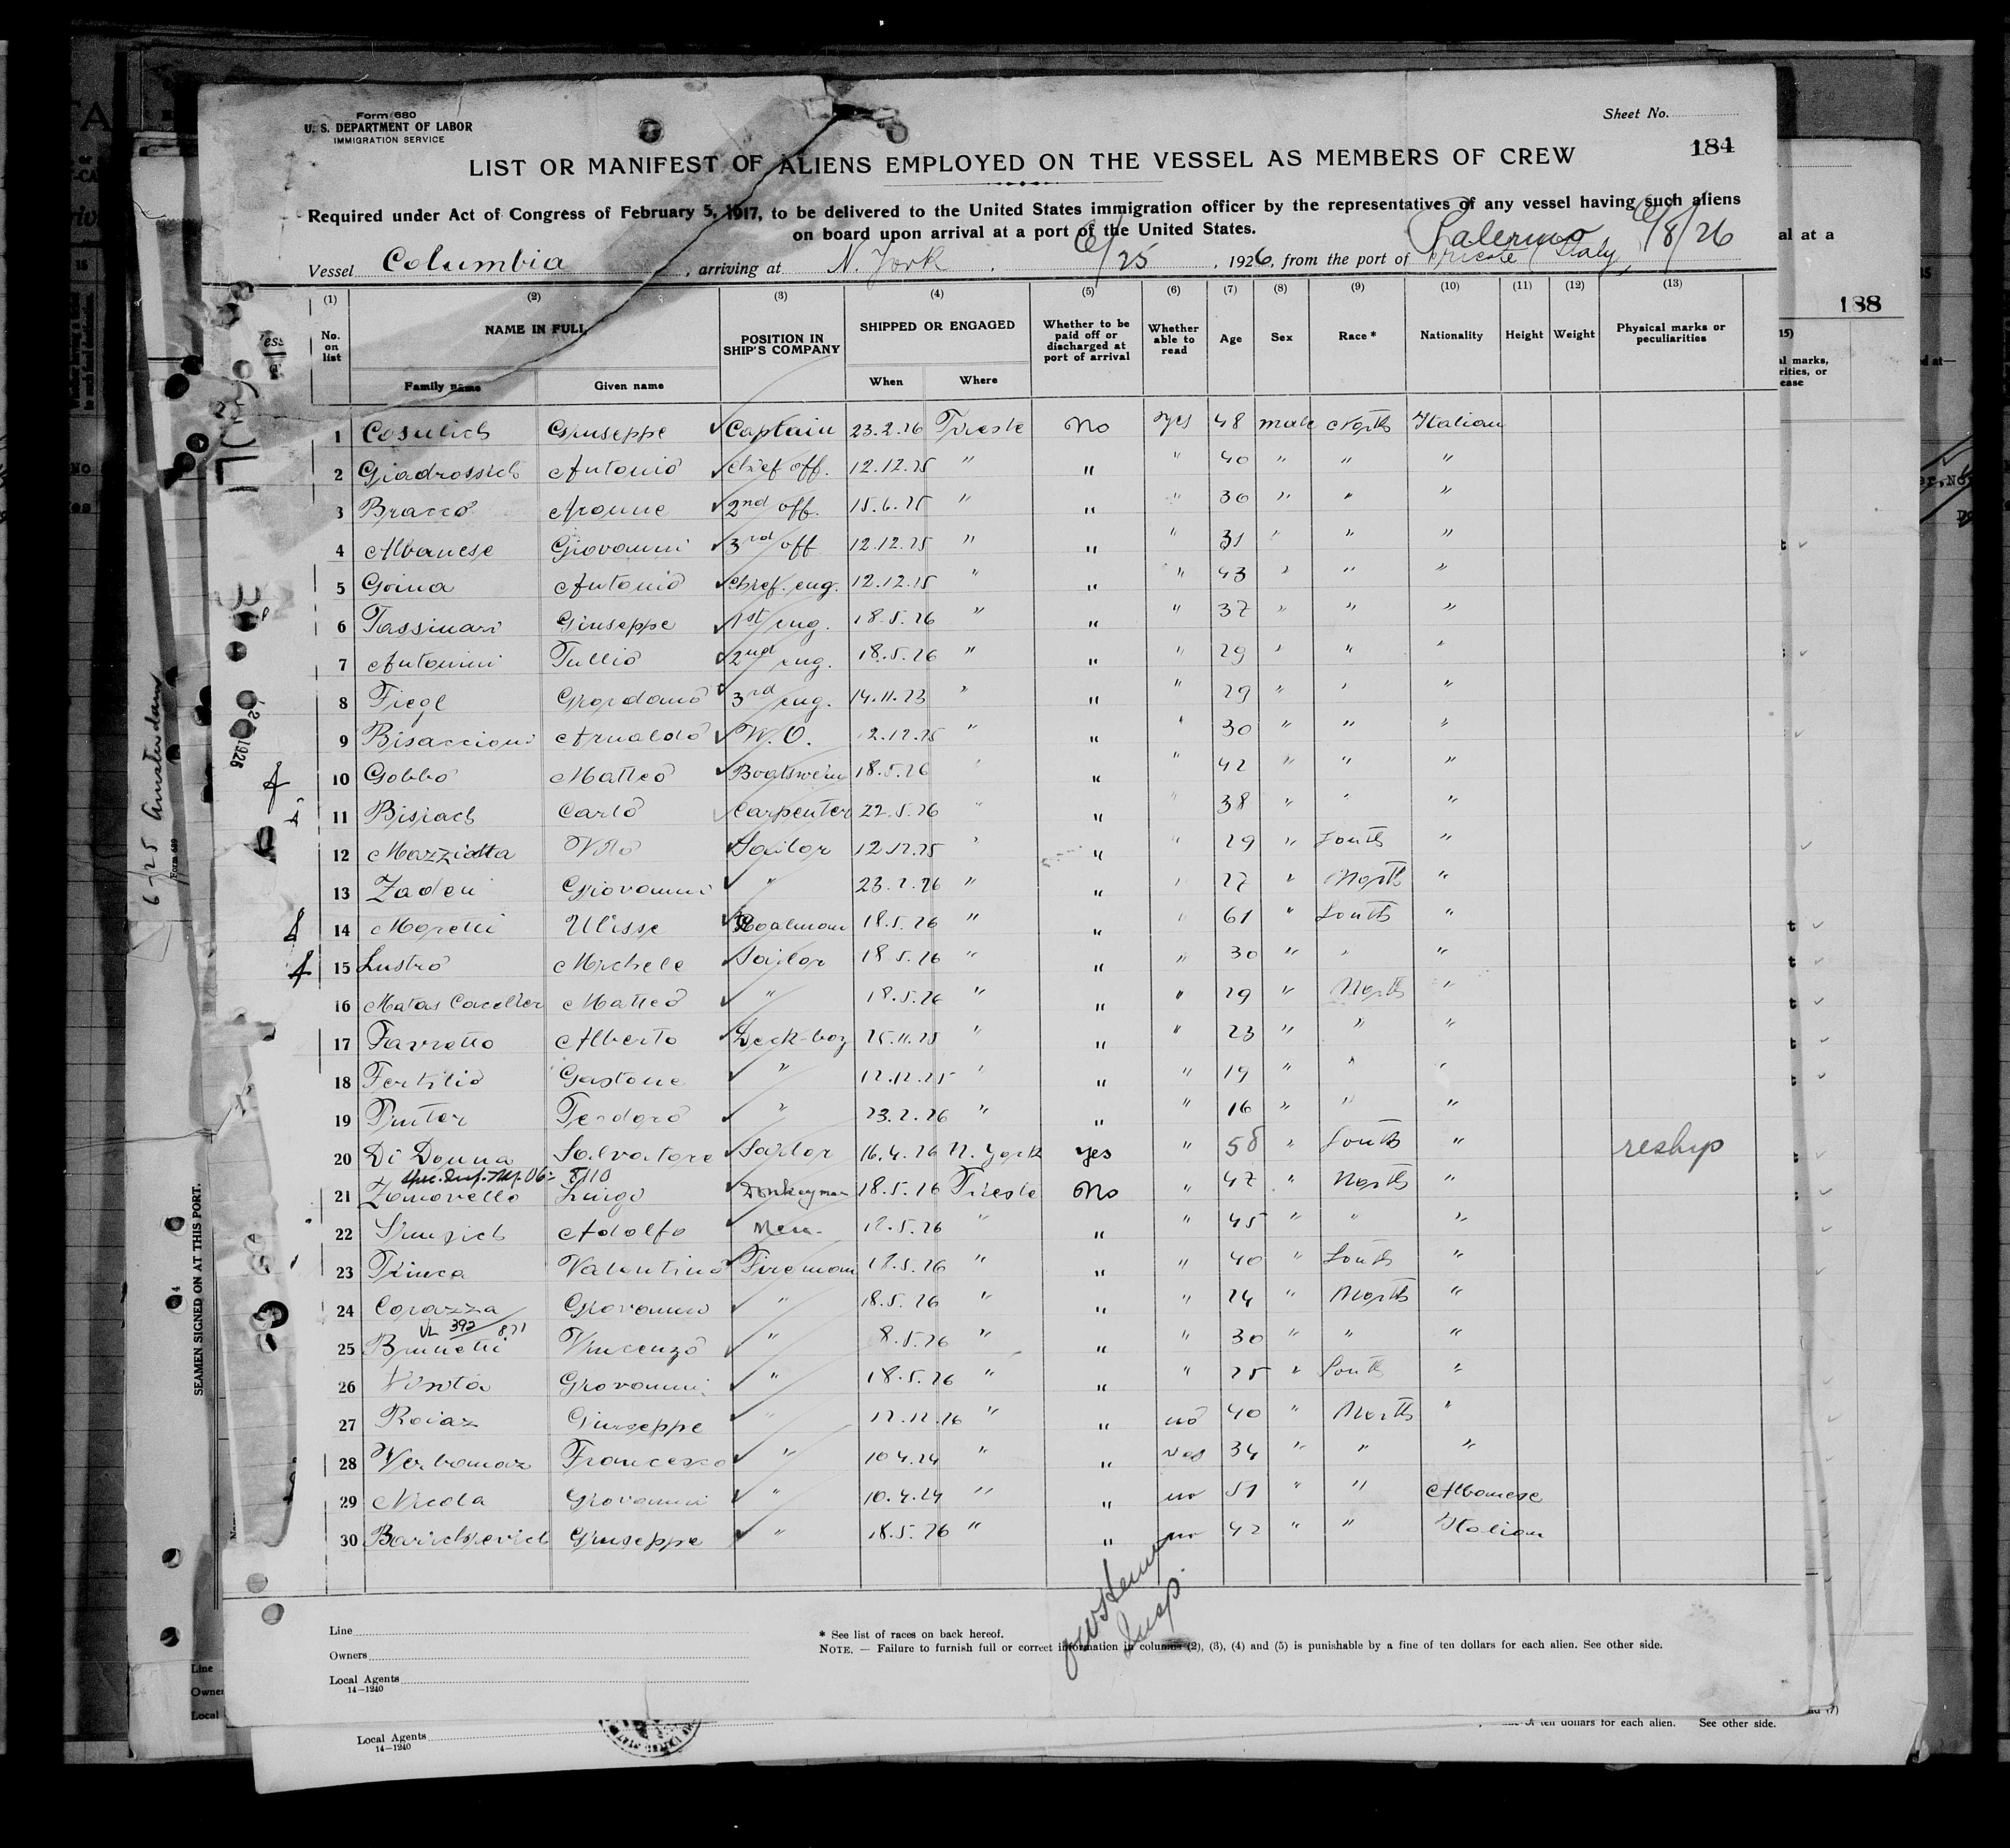 Form 680
U. S. DEPARTMENT OF LABOR
IMMIGRATION SERVICE
Sheet No.
184
LIST OR MANIFEST OF ALIENS EMPLOYED ON THE VESSEL AS MEMBERS OF CREW
Required under Act of Congress of February 5, 1917, to be delivered to the United States immigration officer by the representatives of any vessel having such aliens
on board upon arrival at a port of the United States.
Palermo 6/8/26
Vessel Columbia, arriving at N. York 6/25, 1926, from the port of Trieste (Italy)
(1) (2) (3) (4) (5) (6) (7) (8) (9) (10) (11) (12) (13)
No. on list NAME IN FULL POSITION IN SHIP'S COMPANY SHIPPED OR ENGAGED Whether to be paid off or discharged at port of arrival Whether able to read Age Sex Race* Nationality Height Weight Physical marks or peculiarities
Family name Given name When Where
1 Cosulich Giuseppe Captain 23.2.26 Trieste No yes 48 male North Italian
2 Giadrossich Antonio chief off. 12.12.25 " " " 40 " " "
3 Bracco Aronne 2nd off. 15.6.25 " " " 36 " " "
4 Albanese Giovanni 3rd off 12.12.25 " " " 31 " " "
5 Goina Antonio chief eng. 12.12.25 " " " 43 " " "
6 Tassinari Giuseppe 1st eng. 18.5.26 " " " 37 " " "
7 Antonini Tullio 2nd eng. 18.5.26 " " " 29 " " "
8 Fiegl Giordano 3rd eng. 14.11.23 " " " 29 " " "
9 Bisaccioni Arnaldo W.O. 12.12.25 " " " 30 " " "
10 Gobbo Matteo Boatswein 18.5.26 " " " 42 " " "
11 Bisiach Carlo Carpenter 22.5.26 " " " 38 " " "
12 Mazziotta Vito Sailor 12.12.25 " " " 29 " South "
13 Zadeu Giovanni " 23.2.26 " " " 27 " North "
14 Moretti Ulisse 18.5.26 " " " 61 " South "
15 Lustro Michele Sailor 18.5.26 " " " 30 " " "
16 Matas Matteo " 18.5.26 " " " 29 " North "
17 Favretto Alberto Deck-boy 25.11.25 " " " 23 " " "
18 Fertilio Gastone " 12.12.25 " " " 19 " " "
19 Pinter Teodoro " 23.2.26 " " " 16 " " "
20 Di Donna Salvatore Sailor 16.4.26 N. York yes " 58 " South " reship
21 Zanovello Luigi Donkeyman 18.5.26 Trieste No " 47 " North "
22 Adolfo 18.5.26 " " " 45 " " "
23 Trinca Valentino Fireman 18.5.26 " " " 40 " South "
24 Corazza Giovanni " 18.5.26 " " " 24 " North "
392
25 Brunetti Vincenzo " 8.5.26 " " " 30 " " "
26 Giovanni " 18.5.26 " " " 25 " South "
27 Roiaz Giuseppe " 12.12.26 " " no 40 " North "
28 Verbanaz Francesco " 10 4.24 " " yes 34 " " "
29 Nicola Giovanni " 10.4.24 " " no 51 " " Albanese
30 Giuseppe " 18.5.26 " " no 42 " " Italian
Insp.
Line
Owners
Local Agents
14—1240
* See list of races on back hereof.
NOTE. — Failure to furnish full or correct information in columns (2), (3), (4) and (5) is punishable by a fine of ten dollars for each alien. See other side.
Local Agents
14—1240
of ten dollars for each alien. See other side.
188
al at a
6/25 Amsterdam
Form 689
SEAMEN SIGNED ON AT THIS PORT.
Line
Owner
Local